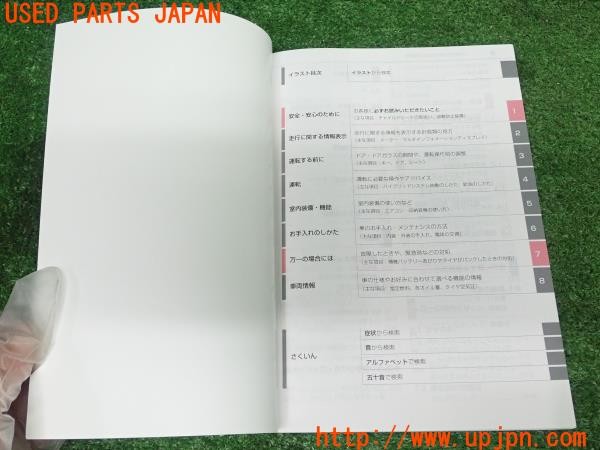 USED PARTS JAPAN
イラスト目次 イラストから検索
安全・安心のために 必ずお読みいただきたいこと 1
走行に関する情報表示 走行に関する情報を表示する計器類の見方 2
(主な項目：メーター・マルチインフォメーションディスプレイ)
運転する前に ドア・ドアガラスの開閉や、運転操作前の調整 3
(主な項目：キー、ドア、シート)
運転 運転に必要な操作やアドバイス 4
(主な項目：ハイブリッドシステム始動のしかた、給油のしかた)
室内装備・機能 室内装備の使い方など 5
(主な項目：エアコン・収納装備の使い方)
お手入れのしかた 車のお手入れ・メンテナンスの方法 6
(主な項目：内装・外装の手入れ、電球の交換)
万一の場合には 故障したときや、緊急時などの対処 7
(主な項目：補機バッテリーあがりやタイヤがパンクしたときの対処)
車両情報 車の仕様やお好みに合わせて選べる機能の情報 8
(主な項目：指定燃料、各オイル量、タイヤ空気圧)
さくいん
症状から検索
音から検索
アルファベットで検索
五十音で検索
http://www.upjpn.com